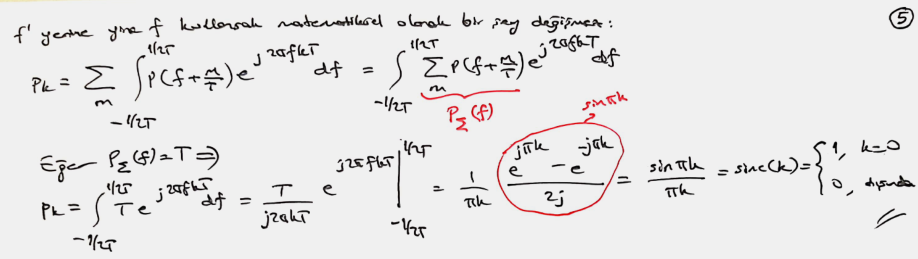 ⑤
f' yerine yine f kullansak matematiksel olarak bir şey değişmez:
Pk = ∑_m ∫_{-1/2T}^{1/2T} P(f+m/T) e^{j2πfkT} df = ∫_{-1/2T}^{1/2T} ∑_m P(f+m/T) e^{j2πfkT} df
P_Σ(f)
sinπk
Eğer P_Σ(f)=T ⇒
Pk = ∫_{-1/2T}^{1/2T} T e^{j2πfkT} df = T/(j2πkT) e^{j2πfkT} |_{-1/2T}^{1/2T} = 1/(πk) (e^{jπk} - e^{-jπk})/(2j) = sinπk/(πk) = sinc(k) = { 1, k=0
0, dışında